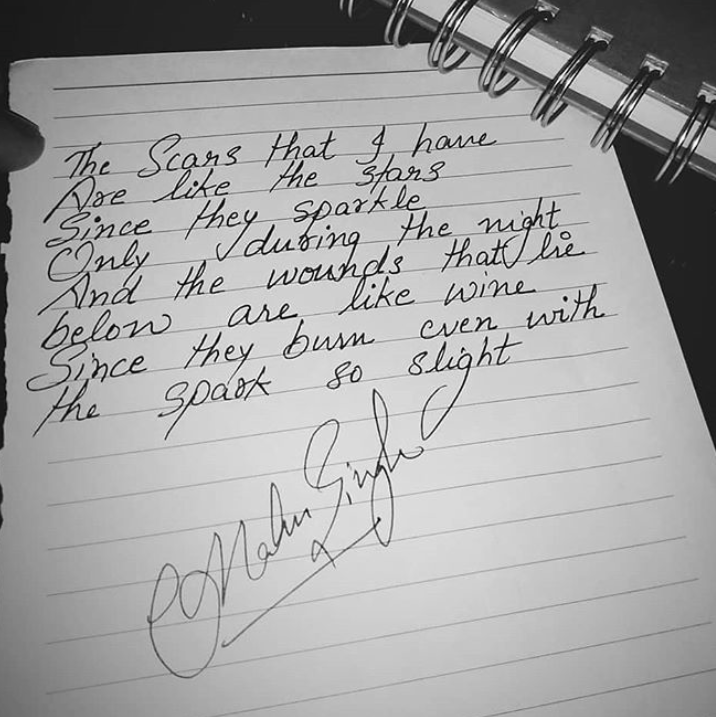 The Scars that I have
Are like the stars
Since they sparkle
Only during the night
And the wounds that lie
below are like wine
Since they burn even with
the spark so slight
Singh